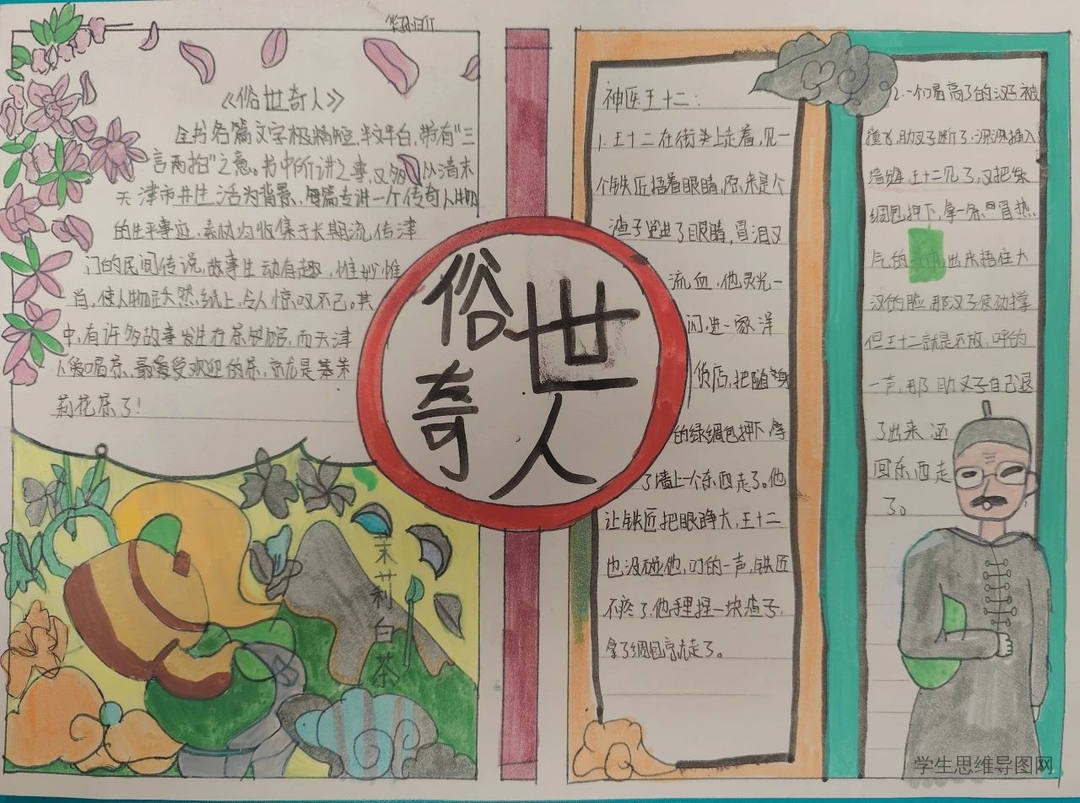 《俗世奇人》
全书名篇文字极精短,半文半白,带有"三
言两拍"之意。书中所讲之事,又多以清末
天津市井生活为背景,每篇专讲一个传奇人物
的生平事迹,素材均收集于长期流传津
门的民间传说,故事生动有趣,惟妙惟
肖,使人物跃然纸上,令人惊叹不已。其
中,有许多故事发生在茶馆,而天津
人爱喝茶、最受欢迎的茶,就是茉
莉花茶了!
俗世
奇人
神医王十二:
1.王十二在街头上走着,见一
个铁匠捂着眼睛,原来是个
渣子进了眼睛,冒泪又
流血,他灵光一
闪,进一家洋
货店,把随身
的绿绸包押下,拿
了墙上一个东西走了。他
让铁匠把眼睁大,王十二
也没碰他,叮的一声,铁匠
不疼了,他手里捏一块渣子,
拿了绸包就走了。
2.一个喝高了的汉被
撞飞,肋叉子断了,深深插入
王十二见了,又把绿
绸包押下,拿一条冒热
气的出来捂住大
汉的脸,那汉子使劲撑
但王十二就是不放,呼的
一声,那肋叉子自己退
了出来,还
回东西走
了。
茉莉白茶
学生思维导图网